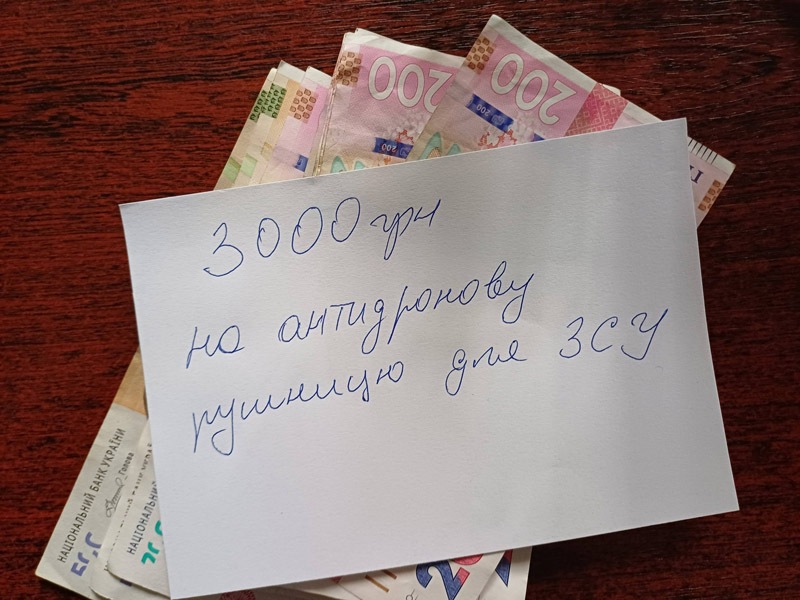 200
200
200
200
3000 грн
на антидронову
рушницю для ЗСУ
НАЦІОНАЛЬНИЙ БАНК УКРАЇНИ
Голова
НАЦІОНАЛЬНИЙ